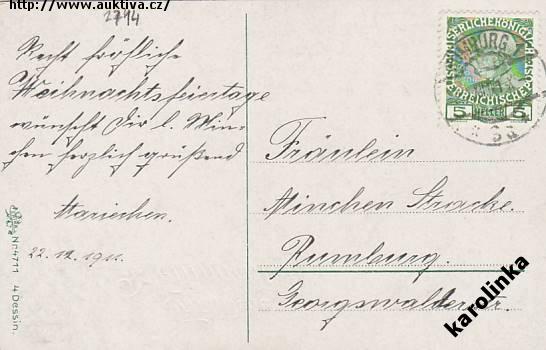 http://www.auktiva.cz/
2794
Recht fröhliche
Weihnachtsfeiertage
wünscht Dir l. Min-
chen herzlich grüßend
Mariechen.
22.12.1911.
Nr. 4711 4 Dessin.
KAISERLICHE KÖNIGLICHE
ÖSTERREICHISCHE POST
5 HELLER 5
Fräulein
Minchen Strache.
Rumburg.
Georgswalderstr.
karolinka